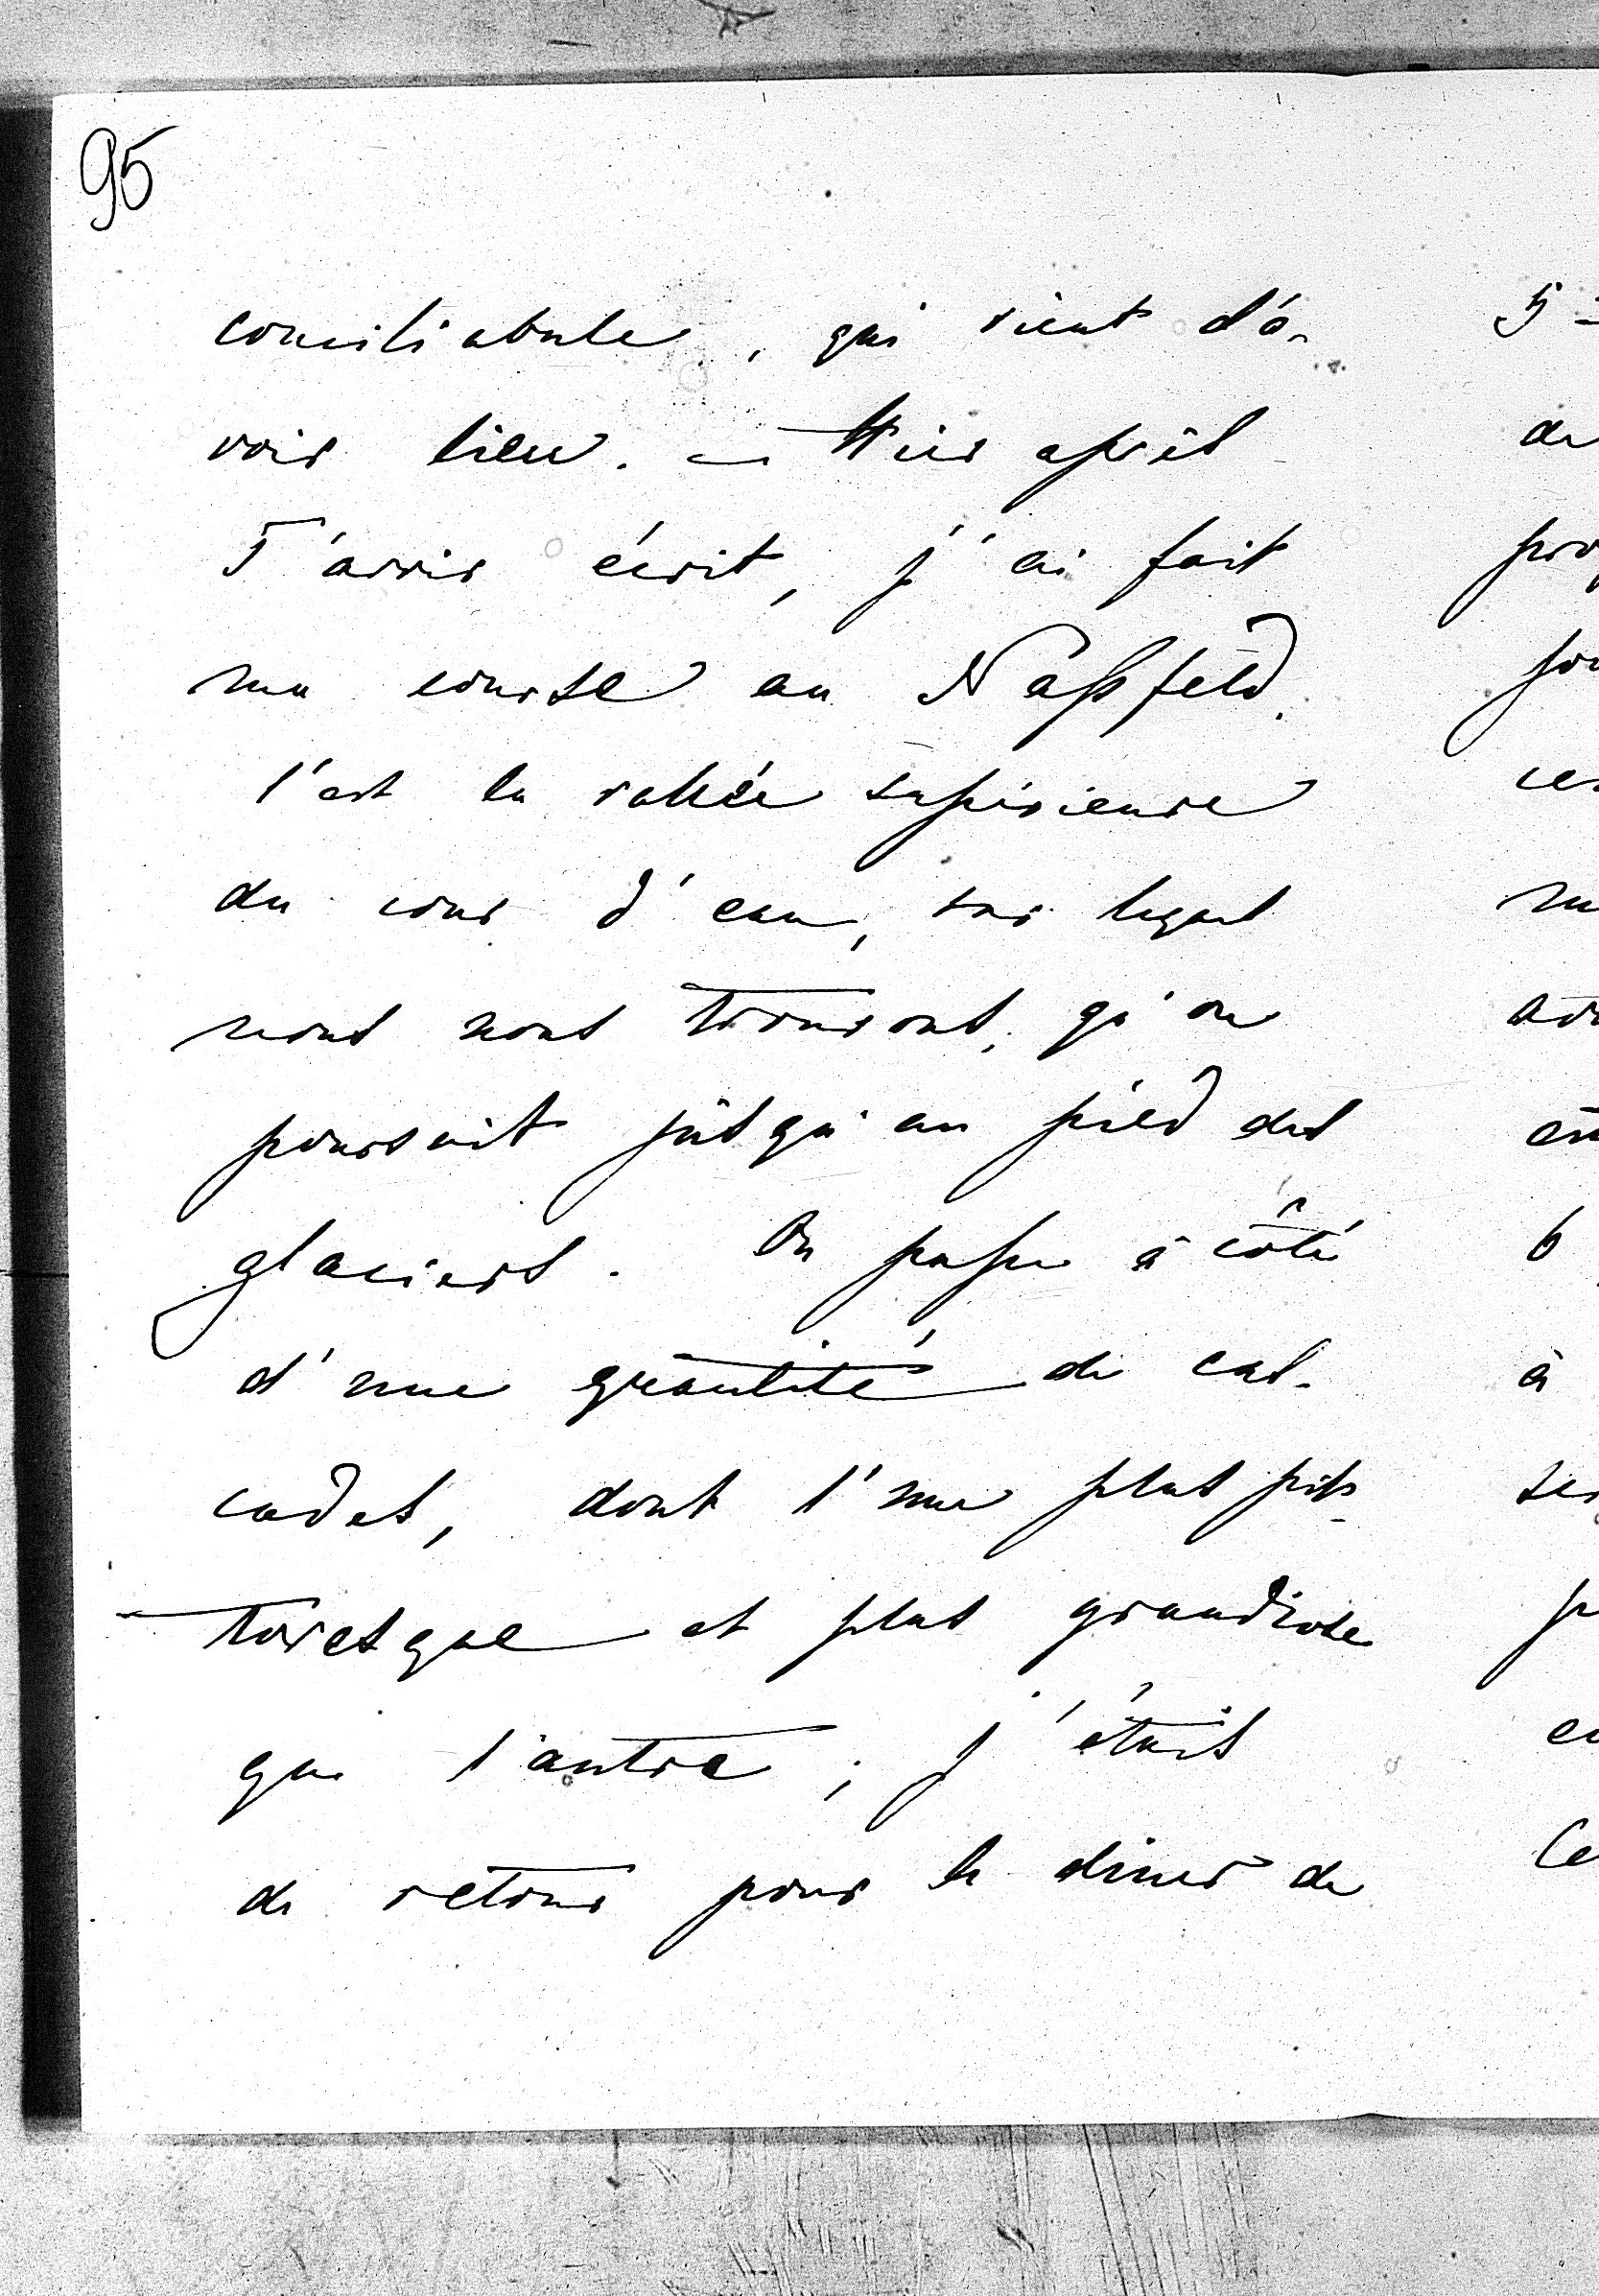 95
conciliabule, qui vient d'a-
voir lieu. — Hier après
T'avoir écrit, j'ai fait
ma course au Naßfeld.
C'est la vallée supérieure
du cour d'eau, sur lequel
nous nous trouvons, qu'on
poursuit jusqu'au pied des
glaciers. On passe à côté
d'une quantité de cas-
cades, dont l'une plus pit-
toresque et plus grandiose
que l'autre; j'étais
de retour pour le diner de
5
de
à